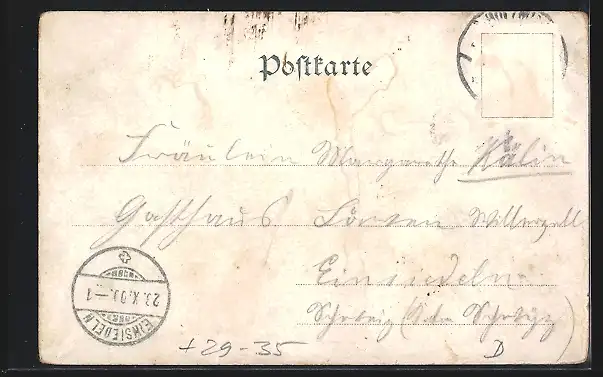 Postkarte
Fräulein Margarethe Kälin
Gasthaus Löwen Willerzell
Einsiedeln
Schweiz (Schwyz)
EINSIEDELN
+29-35
D